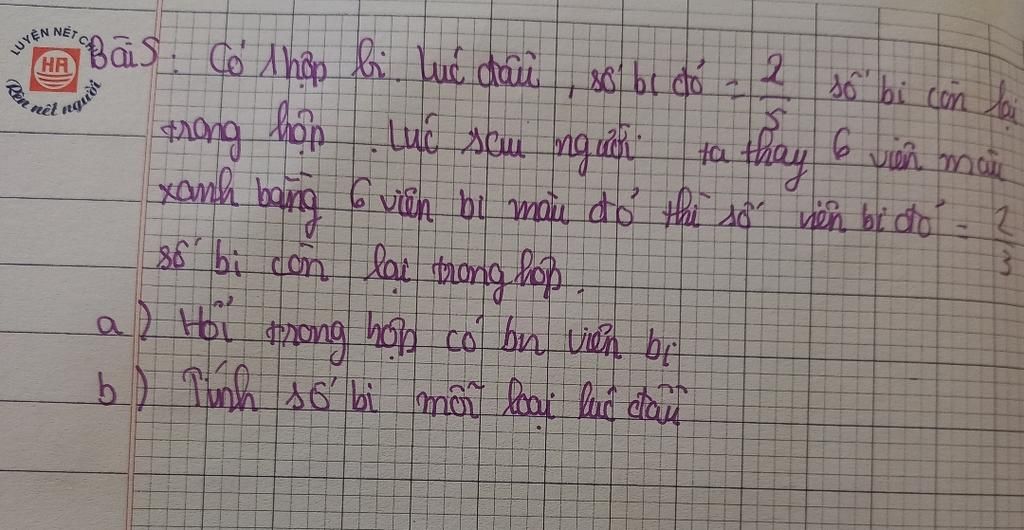 LUYỆN NÉT CHỮ
HA
Rèn nết người
Bài 5: Có 1 hộp bi. Lúc đầu, số bi đỏ = 2/5 số bi còn lại
trong hộp. Lúc sau người ta thay 6 viên màu
xanh bằng 6 viên bi màu đỏ thì số viên bi đỏ = 2/3
số bi còn lại trong hộp.
a) Hỏi trong hộp có bn viên bi
b) Tính số bi mỗi loại lúc đầu